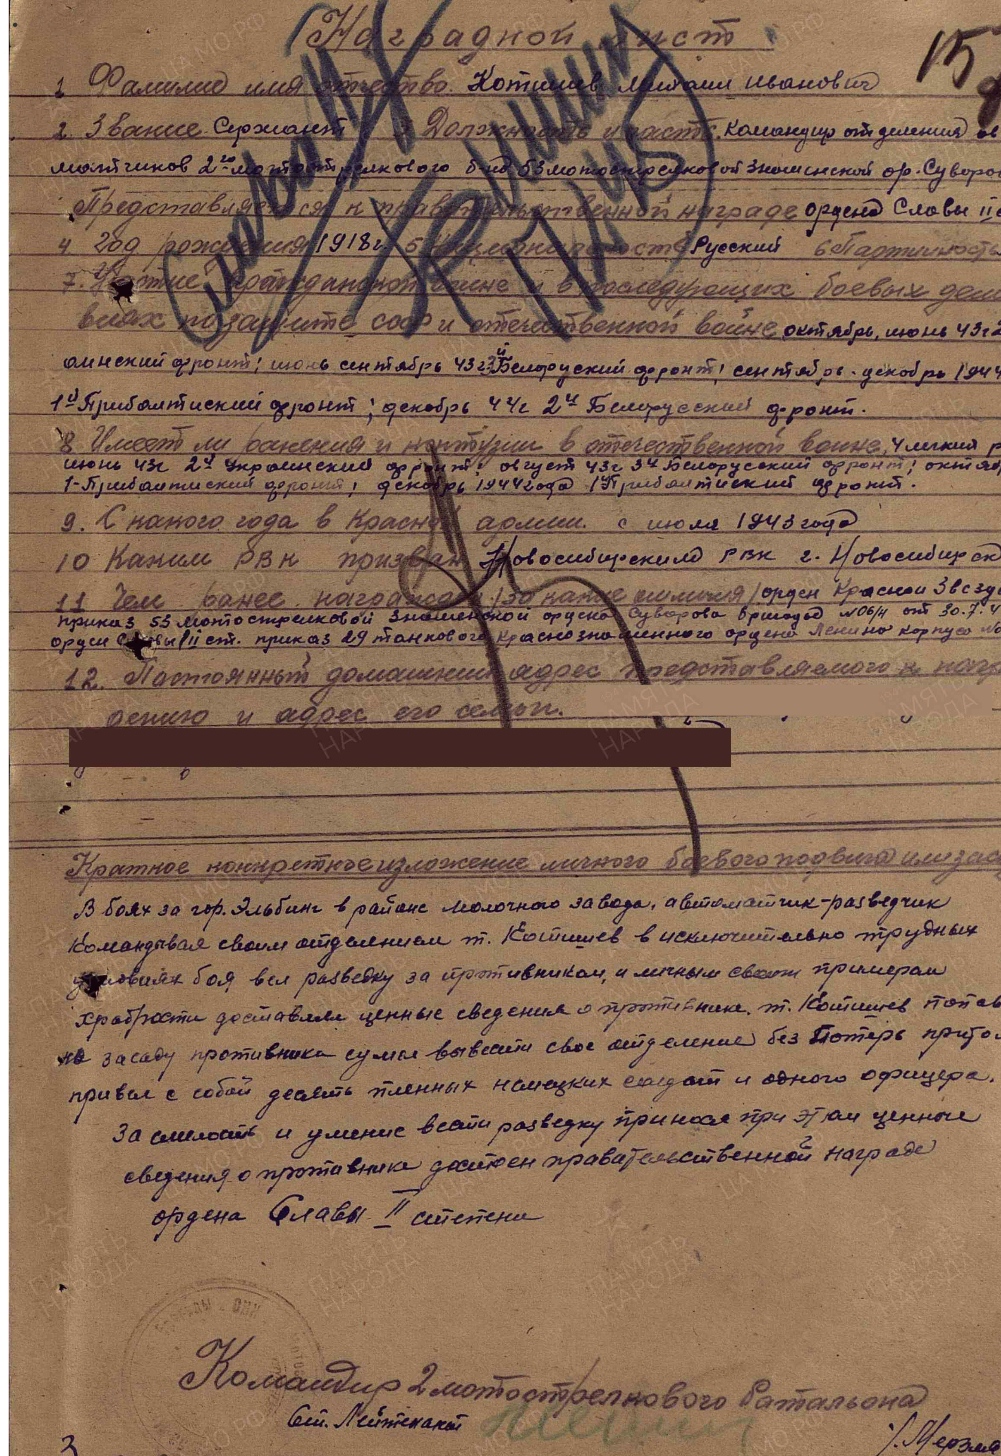 Наградной лист
15
1 Фамилия имя отчество Котишев Михаил Иванович
2. Звание Сержант 3 Должность и часть. Командир отделения ав
матчиков 2го мотострелкового б-на 53 мотострелковой Знаменской ор. Суворо
Представляется к правительственной награде ордена Славы II с
4 Год рождения 1918г 5 Национальность Русский 6 Партийность
7. Участие гражданской войне и в последующих боевых дейс
виях по защите ссср и отечественной войне октябрь, июнь 43г 2
аинский фронт; июнь сентябрь 43г 3й Белоруский фронт; сентябрь-декабрь 1944
1й Прибалтиский фронт; декабрь 44г 2й Белорусский фронт.
8 Имеет ли ранения и контузии в отечественной войне 4 легких р
июнь 43г 2й Украинский фронт; август 43г 3й Белорусский фронт; октяб
1-Прибалтиский фронт; декабрь 1944 года 1 Прибалтиский фронт.
9. С какого года в Красной армии. с июля 1943 года
10 Каким РВК призван Новосибирским РВК г. Новосибирск
11 Чем ранее награжден (за какие отличия) орден Красной Звезды
приказ 53 мотострелковой Знаменской ордена Суворова бригады №06/н от 30.7.4
орден Славы III ст. приказ 29 танкового Краснознаменного ордена Ленина корпуса №
12. Постоянный домашний адрес представляемого к нагр
дению и адрес его семьи.
Краткое конкретное изложение личного боевого подвига или зас
В боях за гор. Эльбинг в районе молочного завода, автоматчик-разведчик
Командывая своим отделением т. Котишев в исключительно трудных
условиях боя вел разведку за противником, и личным своим примером
храбрости доставлял ценные сведения о противнике. т. Котишев попав
на засаду противника сумел вывести свое отделение без потерь прито
привел с собой десять пленных немецких солдат и одного офицера.
За смелость и умение вести разведку принося при этом ценные
сведения о противнике достоен правательственной награде
ордена Славы II степени
Командир 2 мотострелкового баталь она
Ст. Лейтенант